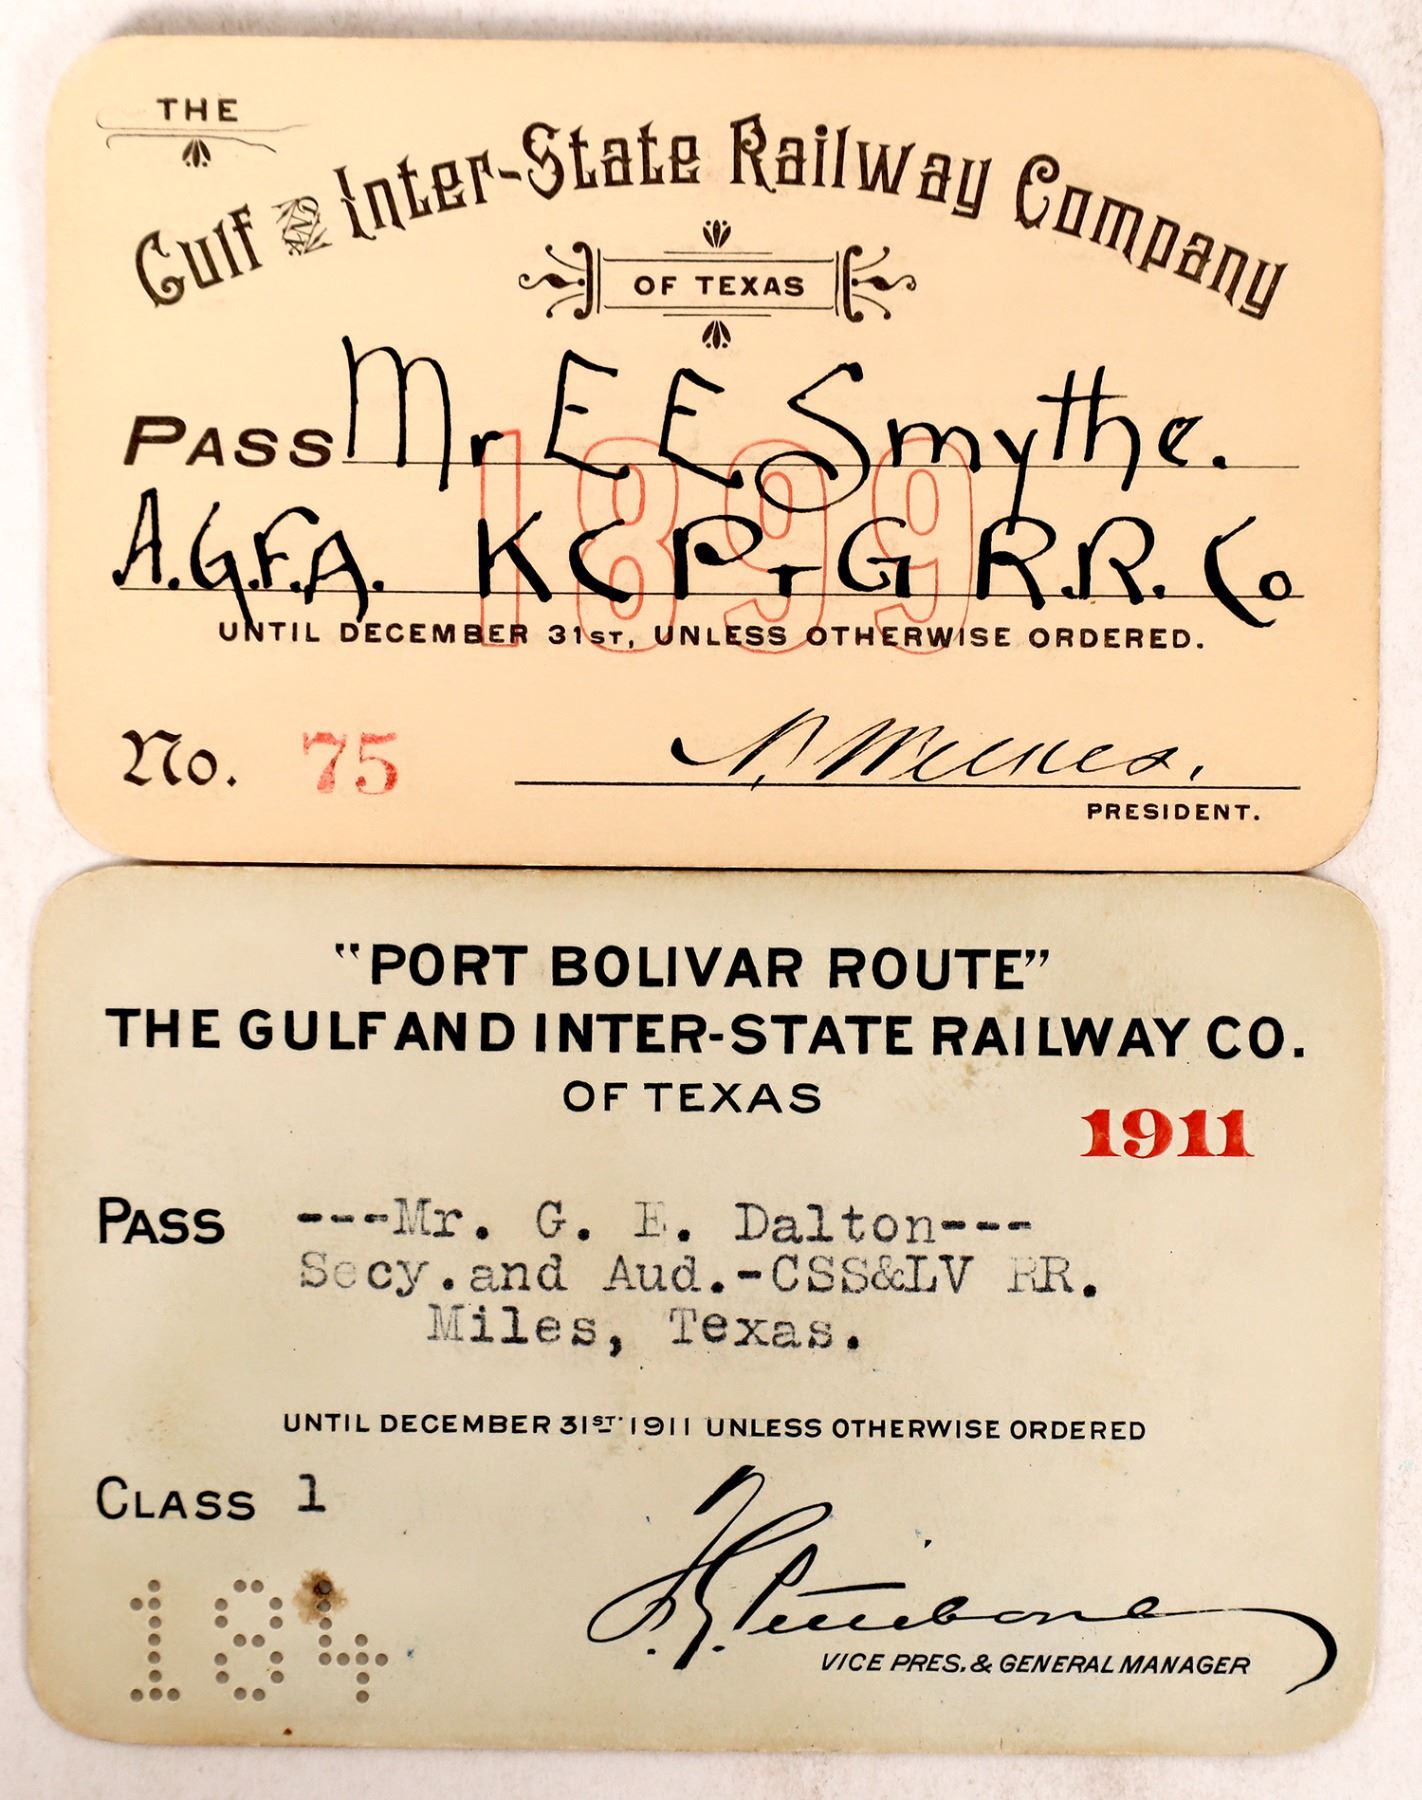 THE
Gulf AND Inter-State Railway Company
OF TEXAS
PASS Mr E E Smythe.
1899
A.G.F.A. K C P & G R.R. Co
UNTIL DECEMBER 31ST, UNLESS OTHERWISE ORDERED.
No. 75
PRESIDENT.
"PORT BOLIVAR ROUTE"
THE GULF AND INTER-STATE RAILWAY CO.
OF TEXAS
1911
PASS ---Mr. G. E. Dalton---
Secy.and Aud.-CSS&LV RR.
Miles, Texas.
UNTIL DECEMBER 31ST 1911 UNLESS OTHERWISE ORDERED
CLASS 1
184
VICE PRES. & GENERAL MANAGER